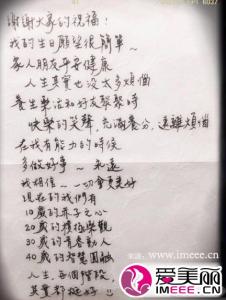 谢谢大家的祝福！
我的生日願望很簡單～
家人朋友平安健康
人生其實也沒太多煩惱
養生樂活和好友聚聚時
快樂的笑聲，充滿養分，遠離煩惱
在我有能力的時候
多做好事～永遠
我相信～一切會更美好
現在的我們有
10歲的赤子之心
20歲的積極樂觀
30歲的青春動人
40歲的智慧圓融
人生，每個階段
其實都挺好
来源：www.imeee.cn
爱美丽
IMEEE.CN